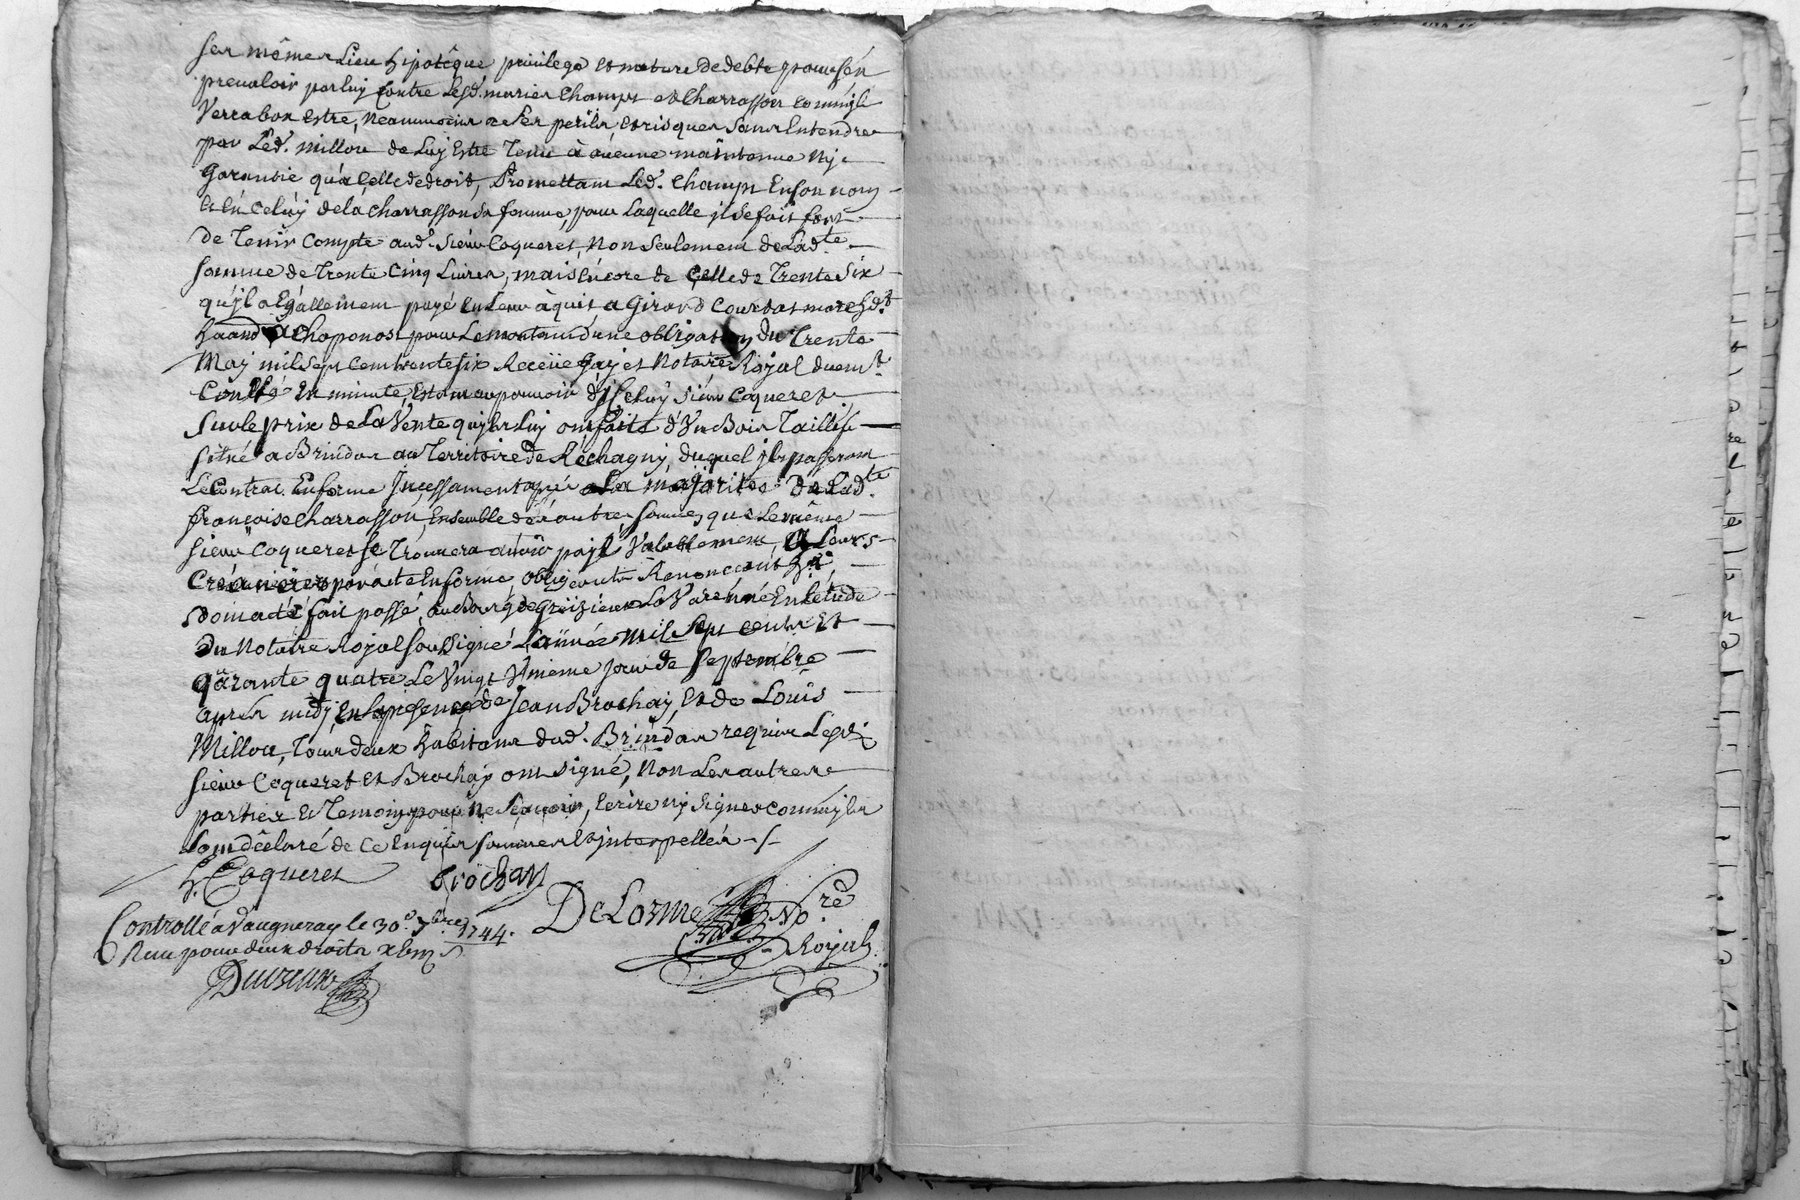 ses mêmes Lieu hipotêque privilege et nature de debte pour s'en
prevaloir par luy Contre Lesd. mariés Champs et Charrasson comm'jl
Verra bon estre, neanmoins a ses perils et risques sans Entendre
par Led. millou de Luy Estre Tenu à aucune maintenue ny
Garantie qu'a Celle de droit, Promettant Led. Champs En son nom
et En Celuy de la Charrasson sa femme, pour Laquelle jl se fait fort
de Tenir Compte aud. Sieur Coqueret, Non Seulement de Lad.te
somme de Trente Cinq Livres, mais Encore de Celle de Trente Six
qu'jl a Egallement payé En Leur àquit, a Girard Courbat march.d
a Chaponost pour Le montant d'une obligation du Trente
May mil sept Cent trente six Receüe Guy et Notaire Royal duem.t
Conllé En minute, Estant au pouvoir d'jCeluy sieur Coqueret
Sur le prix de La Vente qu'jls Luy ont faite d'Un Bois Taillis
situé a Brindas au Territoire de Rechagny, duquel jls passeront
Le Contrat En forme jncessament aprés La majorité de Lad.te
françoise Charrasson, Ensemble des autres sommes que Le même
sieur Coqueret se Trouvera avoir payé Valablement, a Leurs
Creanciers par acte En forme obligeants Renonceants &a,
dont acte fait passé, au Bourg de Greizieu La Varenne En L'etude
du Notaire Royal sousigné L'année mil sept cents Et
qüarante quatre Le Vingt Unieme jour de septembre
aprés midy, En La presence de Jean Brochay, Et de Louis
Millou, Tous deux habitans dud. Brindas requis Led.
sieur Coqueret Et Brochay ont signé, Non Les autres
parties Et Temoin pour Ne Sçavoir, Ecrire ny signer comm'jls
ont déclaré de Ce Enquis sommés Et jnterpellés
Coqueret
brochay
DeLorme No.re
Royal
Controllé à Vaugneray le 30.e 7bre 1744.
Reçu pour deux droits
Duvreux